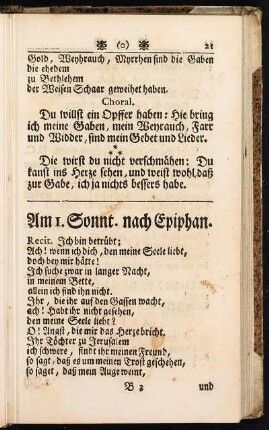 (o) 21
Gold, Weyhrauch, Myrrhen sind die Gaben
die ehedem
zu Bethlehem
der Weisen Schaar geweihet haben.
Choral.
Du willst ein Opffer haben: Hie bring
ich meine Gaben, mein Weyrauch, Farr
und Widder, sind mein Gebet und Lieder.
* * *
Die wirst du nicht verschmähen: Du
kanst ins Herze sehen, und weist wohl, daß
zur Gabe, ich ja nichts bessers habe.
Am 1. Sonnt. nach Epiphan.
Recit. Ich bin betrübt;
Ach! wenn ich dich, den meine Seele liebt,
doch bey mir hätte!
Ich suche zwar in langer Nacht,
in meinem Bette,
allein ich find ihn nicht.
Ihr, die ihr auf den Gassen wacht,
ach! habt ihr nicht gesehen,
den meine Seele liebt?
O! Angst, die mir das Herze bricht.
Ihr Töchter zu Jerusalem
ich schwere, findt ihr meinen Freund,
so sagt, daß es um meinen Trost geschehen,
so saget, daß mein Auge weint,
B 3 und